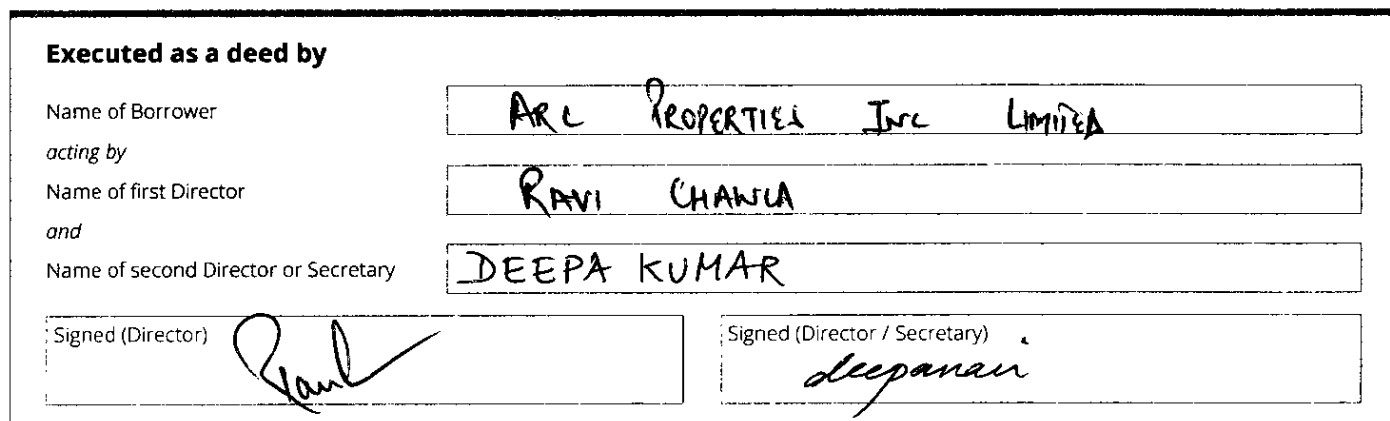 Executed as a deed by
Name of Borrower ARC PROPERTIES INC LIMITED
acting by
Name of first Director RAVI CHAWLA
and
Name of second Director or Secretary DEEPA KUMAR
Signed (Director) Signed (Director / Secretary)
deepanair